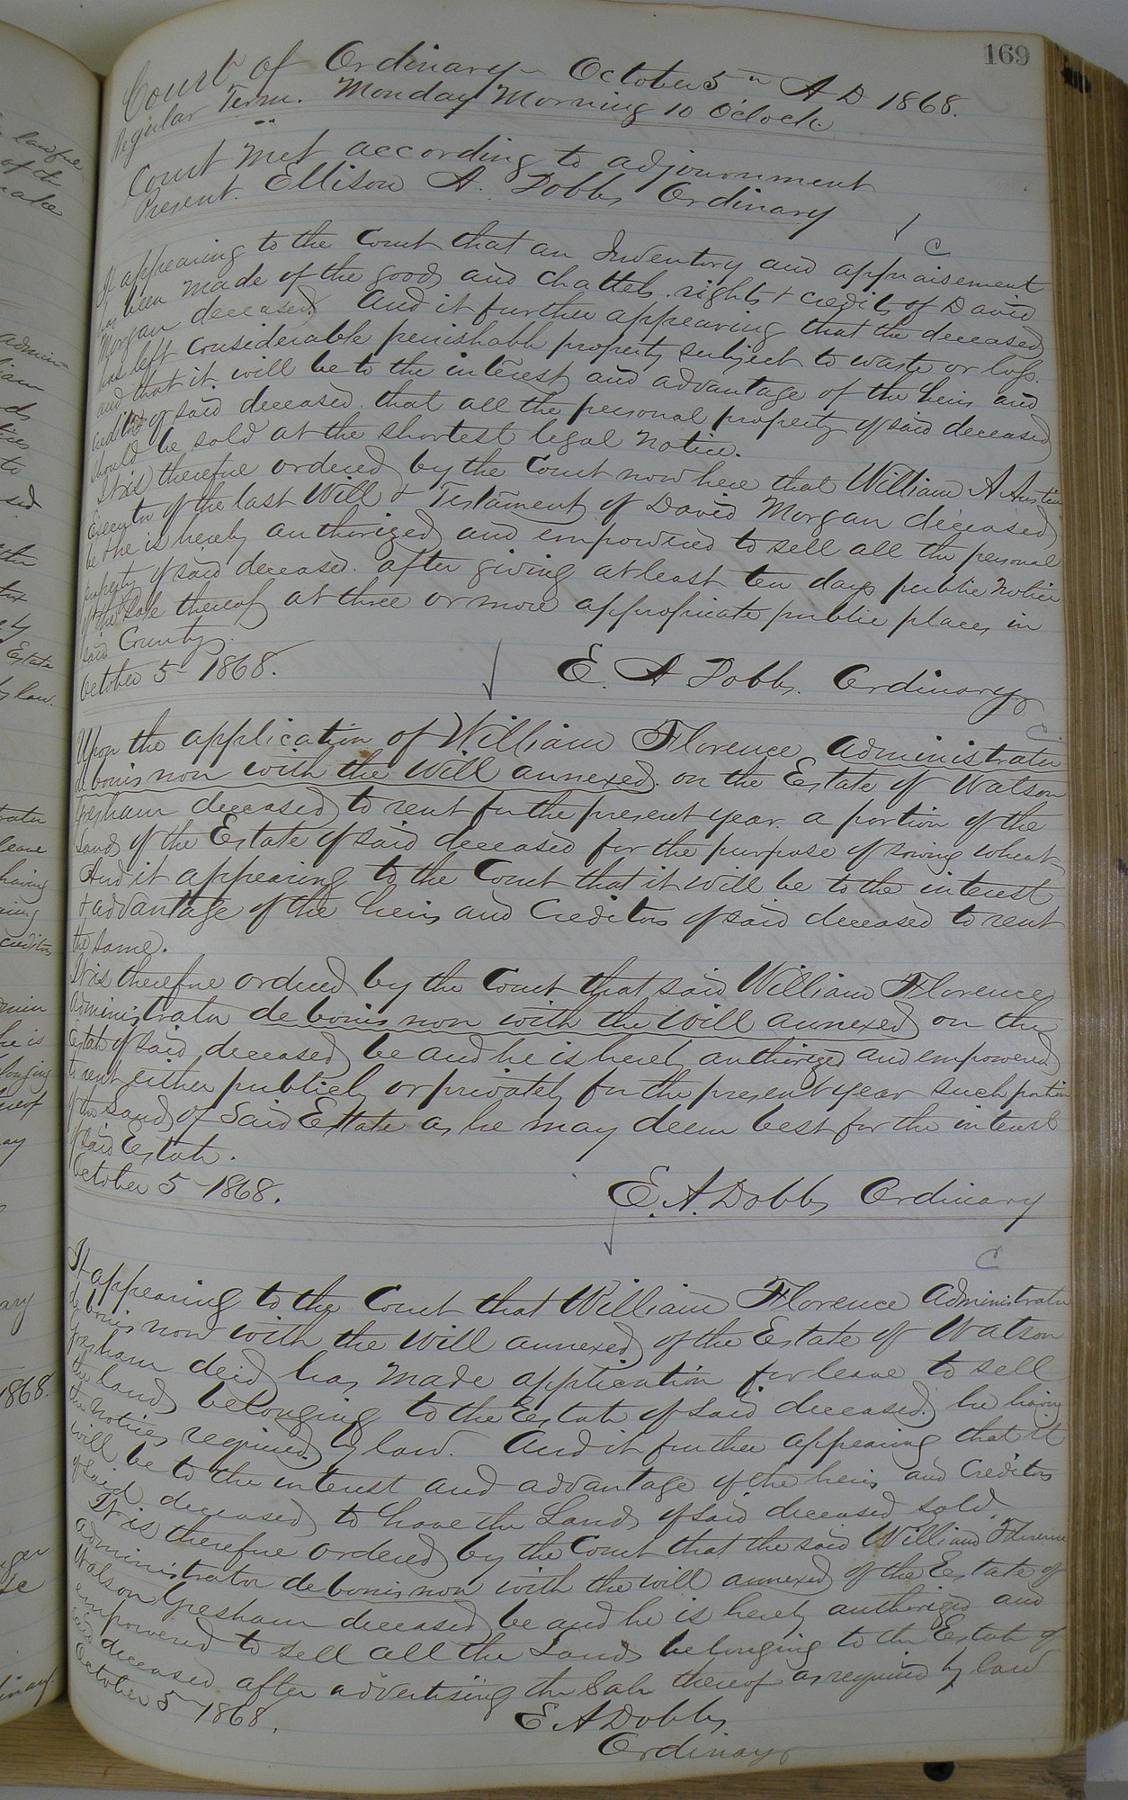 169
Court of Ordinary October 5th A D 1868.
Regular Term. Monday Morning 10 O'clock
Court Met according to adjournment
Present. Ellison A. Dobbs Ordinary
C
It appearing to the Court that an Inventory and appraisement
has been made of the goods and chattels, rights & credits of David
Morgan deceased And it further appearing that the deceased
has left considerable perishable property subject to waste or loss.
and that it will be to the interest and advantage of the heirs and
creditors of said deceased. that all the personal property of said deceased
should be sold at the shortest legal notice.
It is therefore ordered by the Court now here that William A Austin
Executor of the last Will & Testament of David Morgan deceased
be & he is hereby authorized and empowered to sell all the personal
property of said deceased. after giving at least ten days public Notice
of the Sale thereof at three or more appropriate public places in
said County.
October 5th 1868.
E. A Dobbs. Ordinary
C
Upon the application of William Florence administrator
de bonis non with the Will annexed. on the Estate of Watson
Gresham deceased to rent for the present year. a portion of the
Lands of the Estate of said deceased for the purpose of sowing wheat
And it appearing to the Court that it will be to the interest
& advantage of the heirs and Creditors of said deceased to rent
the same.
It is therefore ordered by the Court that said William Florence
administrator de bonis non with the Will annexed on the
Estate of said deceased be and he is hereby authorized and empowered
to rent either publicly or privately for the present year such portion
of the Lands of Said Estate as he may deem best for the interest
of said Estate.
October 5th 1868.
E. A. Dobbs Ordinary
C
It appearing to the Court that William Florence Administrator
de bonis non with the Will annexed of the Estate of Watson
Gresham decd has made application for leave to sell
the lands belonging to the Estate of said deceased. he having
the Notices required by law. And it further appearing that it
will be to the interest and advantage of the heirs and Creditors
of said deceased to have the Lands of said deceased sold.
It is therefore ordered by the Court that the said William Florence
administrator de bonis non with the will annexed of the Estate of
Watson Gresham deceased be and he is hereby authorized and
empowered to sell all the Lands belonging to the Estate of
said deceased after advertising the Sale thereof as required by law
October 5th 1868.
E A Dobbs
Ordinary